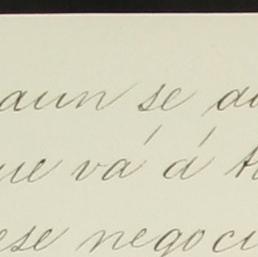 aun se
ue vá á
ese negoci